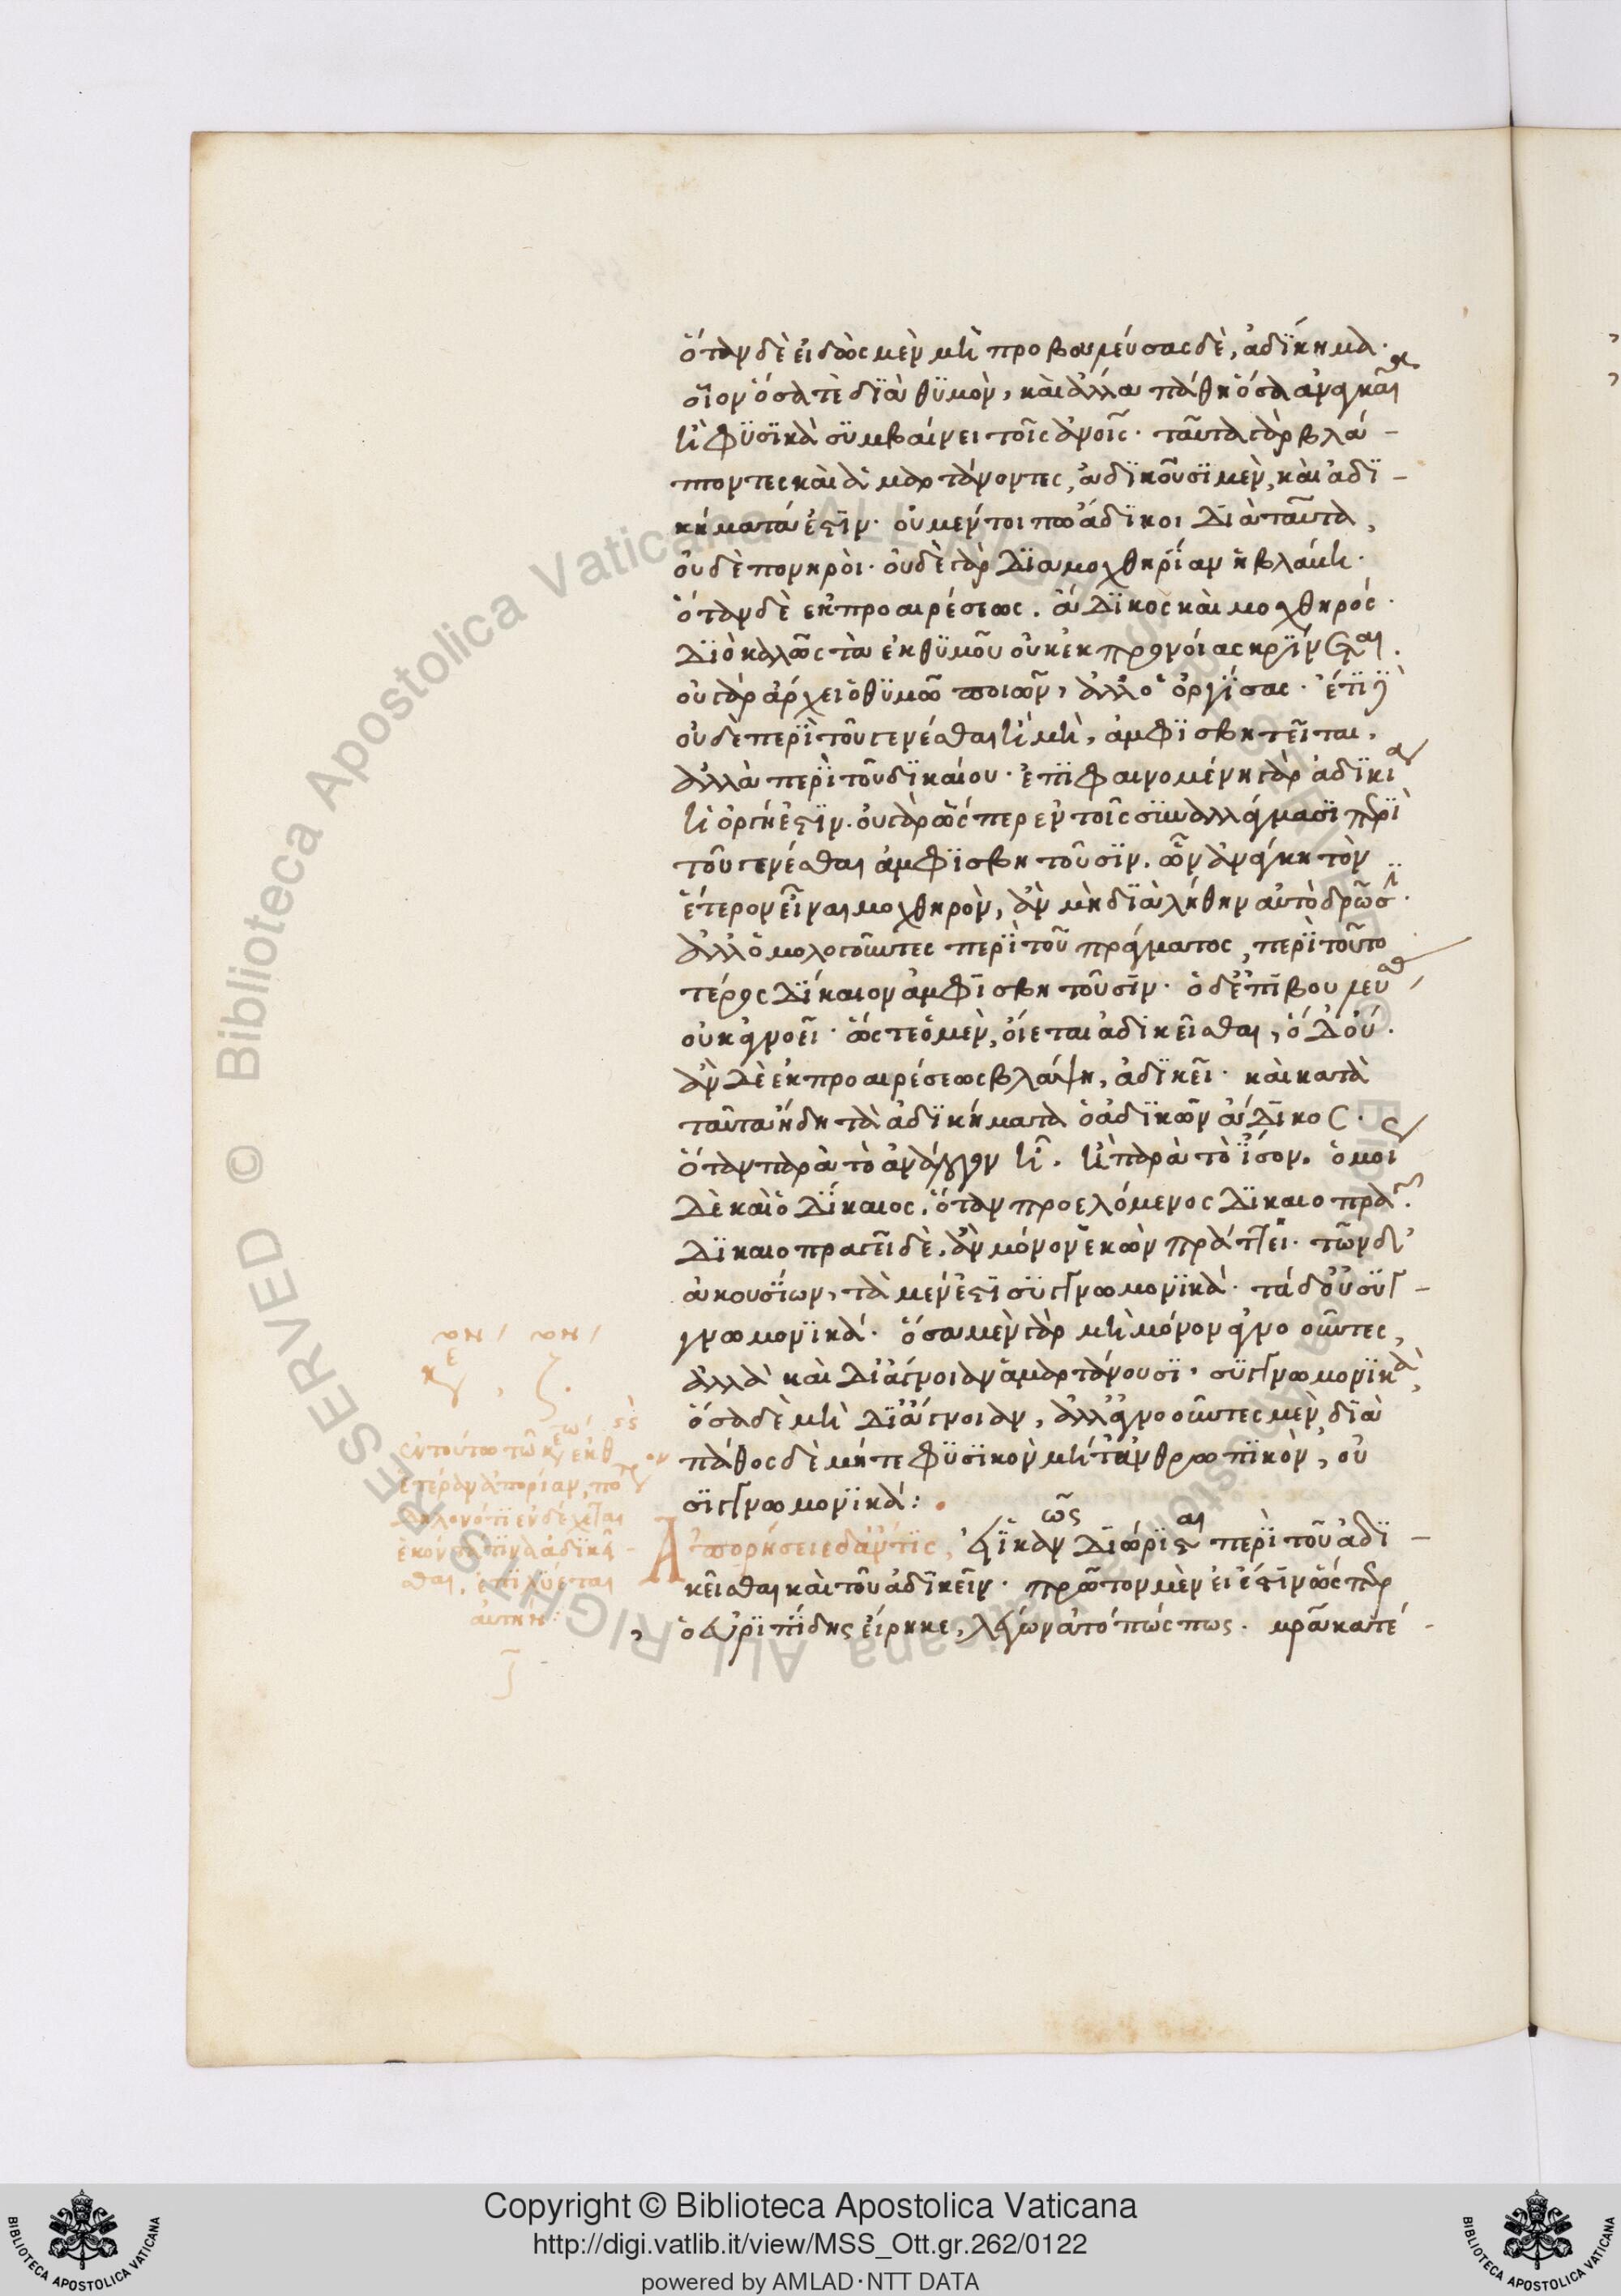 ὅταν δὲ εἰδὼς μὲν μὴ προβουλεύσας δὲ, ἀδίκημα·
οἷον ὅσα τὲ διὰ θυμὸν, καὶ ἄλλα πάθη ὅσα ἀναγκαῖα
ἢ φυσικὰ συμβαίνει τοῖς ἀνοις· ταῦτα γὰρ βλά-
πτοντες καὶ ἁμαρτάνοντες, ἀδικοῦσι μὲν, καὶ ἀδι-
κήματά ἐστιν· οὐ μέντοι πω ἄδικοι διὰ ταῦτα,
οὐδὲ πονηροὶ· οὐδὲ γὰρ διὰ μοχθηρίαν ἡ βλάβη·
ὅταν δὲ ἐκ προαιρέσεως. ἄδικος καὶ μοχθηρός·
διὸ καλῶς τὰ ἐκ θυμοῦ οὐκ ἐκ προνοίας κρίνεται.
οὐ γὰρ ἄρχει ὁ θυμῶ ποιῶν, ἀλλ' ὁ ὀργίσας· ἔτι δὲ
οὐδὲ περὶ τοῦ γενέσθαι ἢ μὴ, ἀμφισβητεῖται,
ἀλλὰ περὶ τοῦ δικαίου· ἐπὶ φαινομένη γὰρ ἀδικία
ἡ ὀργή ἐστιν. οὐ γὰρ ὥσπερ ἐν τοῖς συναλλάγμασι περὶ
τοῦ γενέσθαι ἀμφισβητοῦσιν. ὧν ἀνάγκη τὸν
ἕτερον εἶναι μοχθηρὸν, ἂν μὴ διὰ λήθην αὐτὸ δρῶσι·
ἀλλ' ὁμολογοῦντες περὶ τοῦ πράγματος, περὶ τοῦ πο
τέρως δίκαιον ἀμφισβητοῦσιν· ὁ δ' ἐπιβουλεύσας
οὐκ ἀγνοεῖ· ὥστε ὁ μὲν, οἴεται ἀδικεῖσθαι, ὁ δ' οὔ.
ἂν δὲ ἐκ προαιρέσεως βλάψη, ἀδικεῖ· καὶ κατὰ
ταῦτα ἤδη τὰ ἀδικήματα ὁ ἀδικῶν ἄδικος·
ὅταν παρὰ τὸ ἀνάλογον ἦ. ἢ παρὰ τὸ ἴσον. ὁμοίως
δὲ καὶ ὁ δίκαιος. ὅταν προελόμενος δικαιοπραγῆ·
δικαιοπραγεῖ δὲ, ἂν μόνον ἑκὼν πράττει· τῶν δ'
ἀκουσίων, τὰ μέν ἐστι συγγνωμονικά· τά δ' οὐ συγ-
γνωμονικά· ὅσα μὲν γὰρ μὴ μόνον ἀγνοοῦντες,
ἀλλὰ καὶ δι' ἄγνοιαν ἁμαρτάνουσι· συγγνωμονικὰ,
ὅσα δὲ μὴ δι' ἄγνοιαν, ἀλλ' ἀγνοοῦντες μὲν, διὰ
πάθος δὲ μήτε φυσικὸν μήτ' ἀνθρωπικὸν, οὐ
συγγνωμονικά:
Ἀπορήσειε δ' ἄν τις, εἰ ἱκανῶς διώρισται περὶ τοῦ ἀδι-
κεῖσθαι καὶ τοῦ ἀδικεῖν· πρῶτον μὲν εἰ ἔστιν ὥσπερ
ὁ εὐριπίδης εἴρηκε, λέγων ἀτόπως πως. μρᾶ κατέ-
ἑτέραν ἀπορίαν,
δηλονότι ἐνδέχεται
ἑκόντα τινὰ ἀδικεῖ-
σθαι, ἐπιλύεται
αὐτήν: